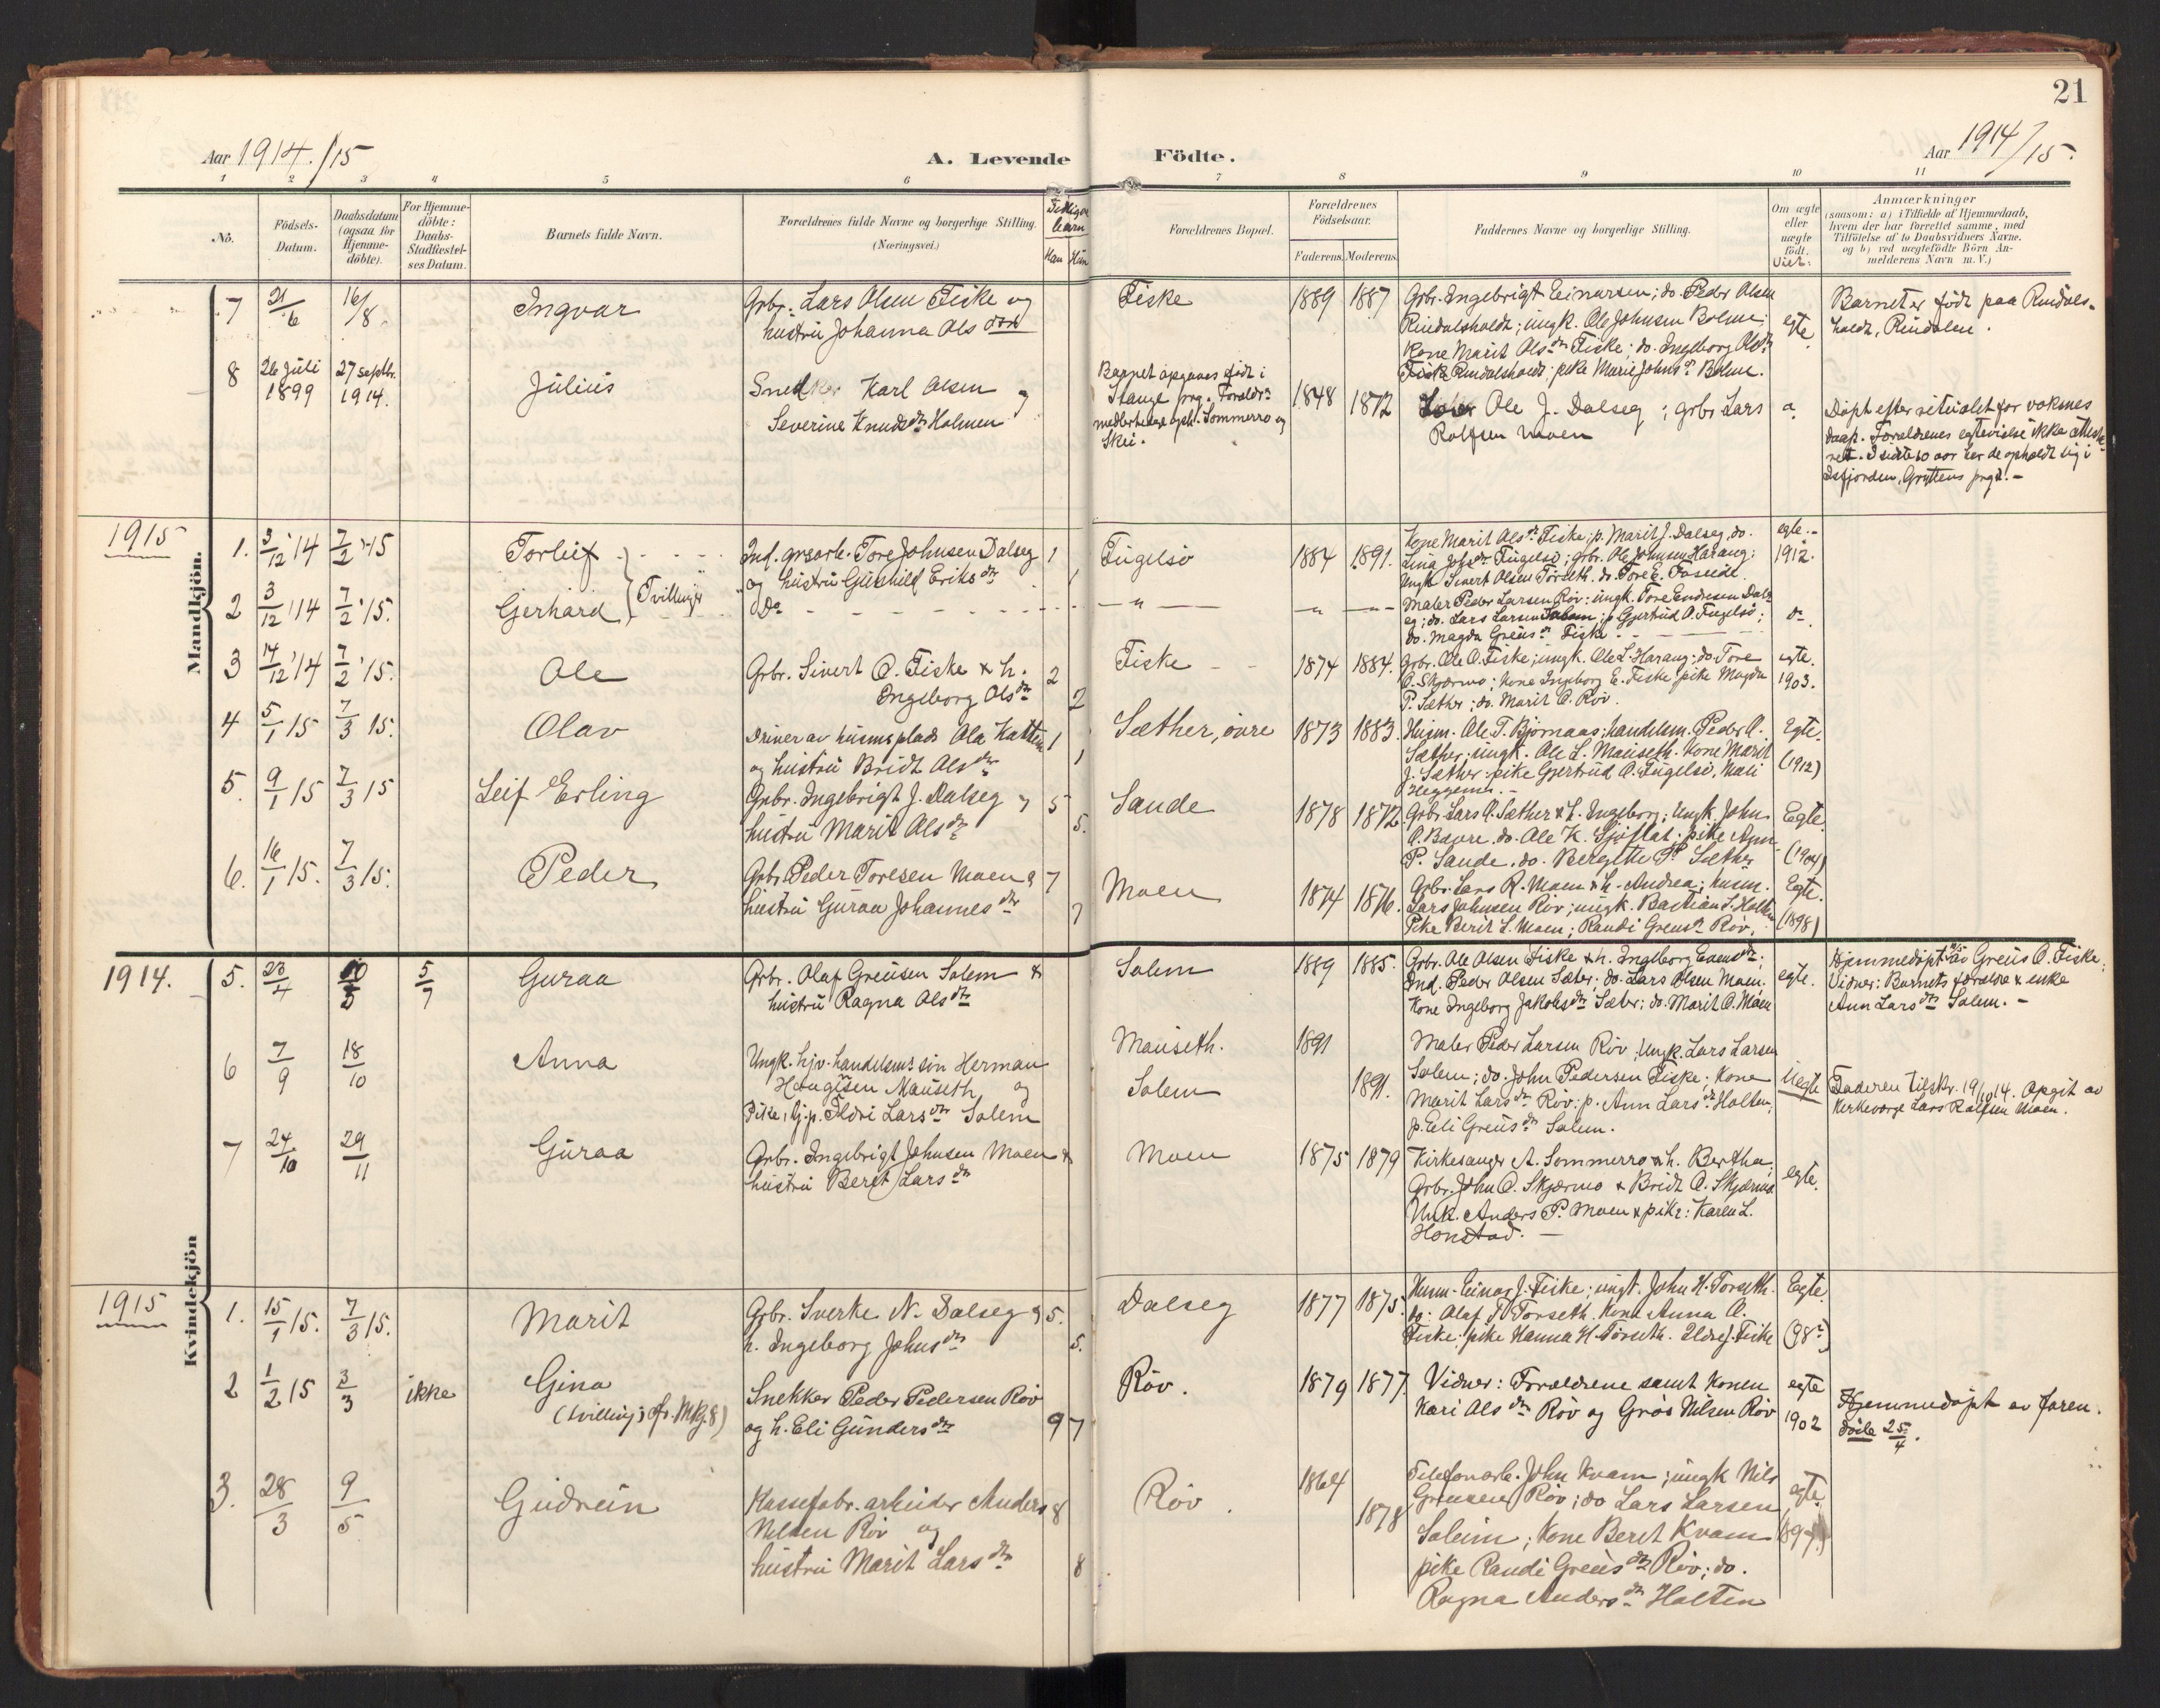 21
Aar 1914./15
A. Levende Födte.
Aar 1914/15.
1 2 3 4 5 6 7 8 9 10 11
No.
Födsels-Datum.
Daabsdatum (ogsaa for Hjemme-döbte).
For Hjemme-döbte: Daabs-Stadfæstel-ses Datum.
Barnets fulde Navn.
Forældrenes fulde Navne og borgerlige Stilling. (Næringsvei.)
Tidligere
børn
Han Hun
Forældrenes Bopæl.
Forældrenes Födselsaar.
Faderens. Moderens.
Faddernes Navne og borgerlige Stilling.
Om ægte eller uægte födt.
Viet:
Anmærkninger
(saasom: a) i Tilfælde af Hjemmedaab,
hvem der har forrettet samme, med
Tilföielse af to Daabsvidners Navne.
og b) ved uægtefödte Börn An-
melderens Navn m. V.)
Mandkjön.
7 21/6 16/8 Ingvar
Grbr. Lars Olsen Fiske og
hustru Johanna Olsdtr
Fiske 1889 1887
Grbr. Engebrigt Einarsen; do. Peder Olsen
Rindalsholdt; ungk. Ole Johnsen Bolme;
Kone Marit Olsdtr Fiske; do. Ingeborg Olsdtr
Rindalsholdt; pike Marie Johnsdr Bolme.
egte.
Barnet er födt paa Rindals-
holdt, Rindalen.
8 26 juli 1899 27 septbr. 1914. Julius
Snedker Karl Olsen og
Severine Knudsdtr Holmen
Barnet opgaves födt i
Stange prg. Foreldr.
Sommerro og
Skei.
1848 1872
Ole J. Dalseg; grbr Lars
Rolfsen Moen
Döpt efter ritualet for voksnes
daap. Foreldrenes egtevielse ikke atteste-
ret. I sidste 10 aar har de opholdt sig i
Isfjorden, Gryttens prgd.-
1915
1. 3/12 '14 7/2 '15 Torleif
Ind. Tore Johnsen Dalseg 1
og hustru Gunhild Eriksdtr 1
Fugelsö 1884 1891.
Kone Marit Olsdr Fiske; p. Marit J. Dalseg, do.
Lina Fugelsö; grbr. Ole Johnsen Harang;
Ungk. Sivert Olsen Torseth. do. Tore E.
egte.-
1912.
2 3/12 '14 7/2 '15. Gjerhard } Tvillinger
Do - - - - -
- " - - " - - " -
Maler Peder Larsen Röv; ungk. Tore Endresen Dals-
eg; do. Lars Larsen Solem; p Gjertrud O. Fugelsö;
do. Magda Greusdr Fiske.
do.
3 14/12 '14 7/2 '15. Ole
Grbr. Sivert O. Fiske & h. 2
Engeborg Olsdtr 2
Fiske 1874 1884.
Grbr. Ole O. Fiske; ungk. Ole L. Harang; do. Tore
O. Skjermo; Kone Ingeborg E. Fiske pike Magda
P. Sæther; do. Marit O. Röv.
egte.
1903.
4 5/1 15 7/3 15. Olav
Driver av husmsplads Ola Katten 1
og hustru Bridt Olsdtr 1
Sæther, övre 1873 1883.
Husm. Ole T. Björnaas; handelsm. Peder O.
Sæther; ungk. Ole L. Mauseth. Kone Marit
J. Sæther. pike Gjertrud O. Fugelsö, Mali
Heggem.-
Egte.
(1912)
5. 9/1 15 7/3 15 Leif Erling
Grbr. Ingebrigt J. Dalseg og 5
hustru Marit Olsdtr 5.
Sande 1878 1872.
Grbr. Lars O. Sæther & h. Ingeborg; Ungk. John
O. Bævre. do. Ole K. Sjöflat. pike Ann
P. Sande. do. Bergitte P. Sæther
Egte.
(1904)
6. 16/1 15. 7/3 15. Peder
Grbr. Peder Toresen Moen og 7
hustru Guraa Johannesdtr 7
Moen 1874 1876.
Grbr. Lars R. Moen & h. Andrea; husm.
Lars Johnsen Röv; ungk. Bastian L. Holten
Pike Berit L. Moen; Randi Greusdr Röv,
Egte.
(1898)
Kvindekjön
1914.
5. 23/4 10/5 5/7 Guraa
Grbr. Olaf Greusen Solem &
hustru Ragna Olsdtr
Solem 1889 1885.
Grbr. Ole Olsen Fiske & h. Ingeborg Evensdtr;
Ind. Peder Olsen Sæter; do. Lars Olsen Moen.
Kone Ingeborg Jakobsdtr Sæter; do. Marit O. Moen
egte.
Hjemmedöpt 10/5 av Greus O. Fiske.
Vidner: Barnets foreldre & enke
Ann Larsdtr Solem. -
6 7/9 18/10 Anna
Ungk. hjv. handelsm. sön Herman
Haugsen Mauseth og
Pike, hj.p. Ildri Larsdtr Solem
Mauseth. 1891
Solem 1891.
Maler Peder Larsen Röv; Ungk. Lars Larsen
Solem; do. John Pedersen Fiske; Kone
Marit Larsdtr Röv; p. Ann Larsdtr Holten;
p. Eli Greusdtr Solem.
Uegte
Faderen tilskr. 19/10 14. Opgit av
Kirkeverge Lars Rolfsen Moen.
7 24/10 29/11 Guraa
Grbr. Ingebrigt Johnsen Moen &
hustru Beret Larsdtr
Moen 1875 1879
Kirkesanger A. Sommerro & h. Bertha;
Grbr. John O. Skjermo & Bridt O. Skjermo
Unk. Anders P. Moen & pike: Karen L.
Honstad. -
egte.
1915
1. 15/1 15. 7/3 15. Marit
Grbr. Sverke N. Dalseg og 5.
h. Ingeborg Johnsdtr 5.
Dalseg 1877 1875.
Husm. Einar J. Fiske; ungk. John H. Torseth.
do: Olaf T. Torseth. Kone Anna O.
Fiske; pike Hanna H. Torseth. Ildre J. Fiske
Egte.
2 1/2 15 3/3 ikke Gina
(tvilling; cfr. M.Kj. 8)
Snekker Peder Pedersen Röv
og h. Eli Gundersdtr 9 7
Röv. 1879 1877.
Vidner: Foreldrene samt Konen
Kari Olsdtr Röv og Gros Nilsen Röv
egte
1902
Hjemmedöpt av faren.
Död 25/4.
3. 28/3 9/5 Gudrun
Kassefabr. arbeider Anders 8
Nilsen Röv og
hustru Marit Larsdtr 8
Röv. 1864
1878
Telefonarb. John Kvam; ungk Nils
Greusen Röv; do Lars Larsen
Soleim; Kone Beret Kvam
pike Randi Greusdtr Röv; do.
Ragna Andersdtr Holten
egte.